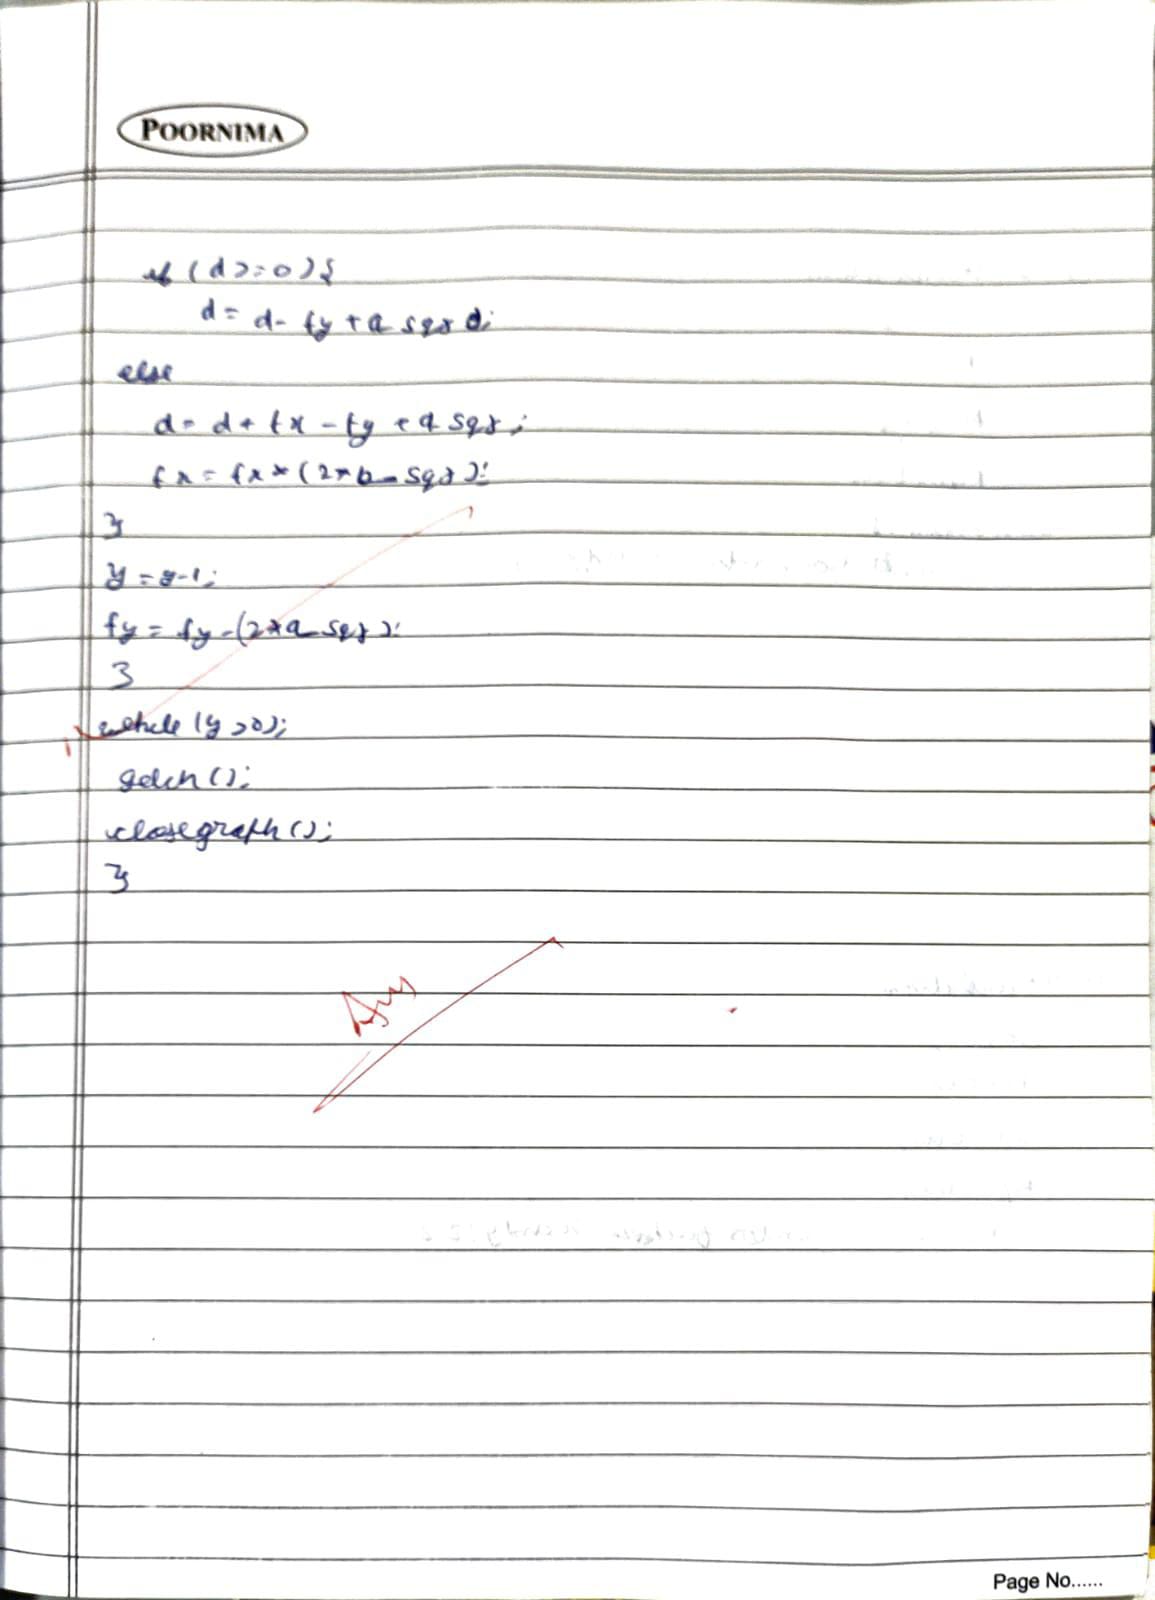 POORNIMA
if (d>=0){
d= d- fy + a sqr d;
else
d= d+ fx - fy + a sqr;
fx = fx * (2*b_sqr);
}
y = y-1;
fy = fy-(2*a_sqr);
}
while (y>0);
getch ();
closegraph ();
}
Page No......